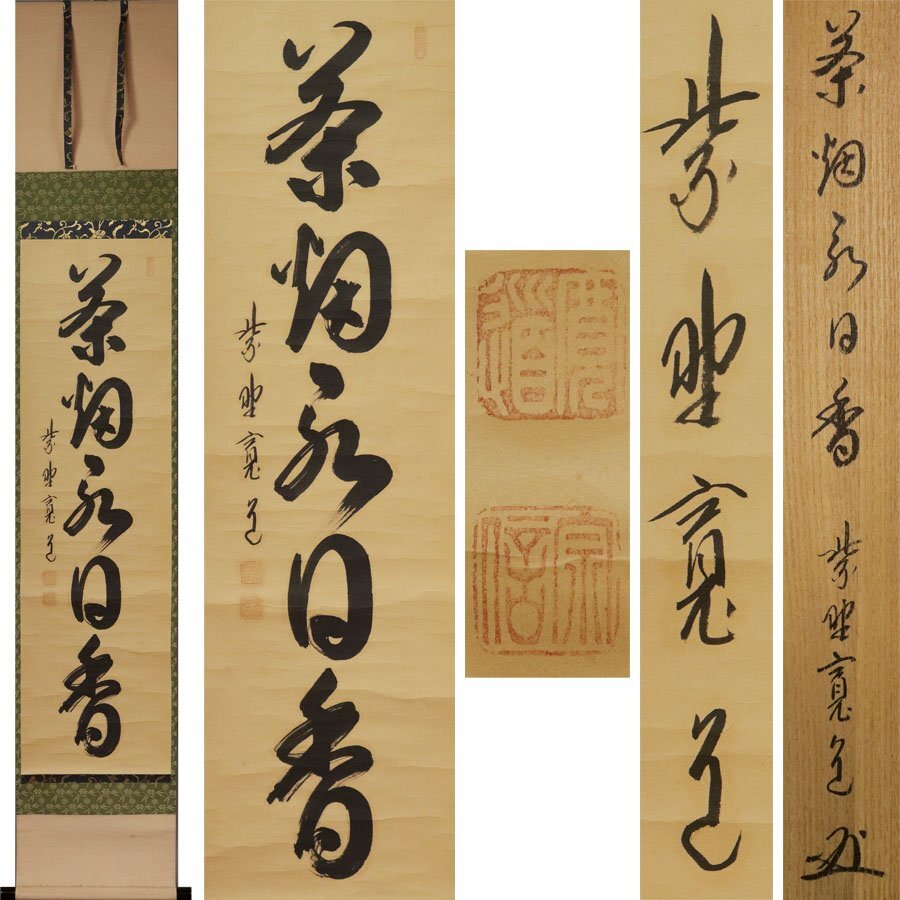 茶烟永日香
紫野寛道
茶烟永日香
紫野寛道
寛道
宗信
紫野寛道
茶烟永日香 紫野寛道